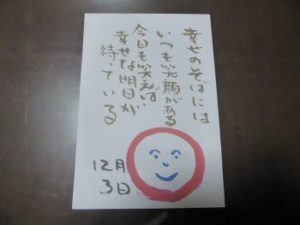 幸せのそばには
いつも笑顔がある
今日も笑えば
幸せな明日が
待っている
12月
3日